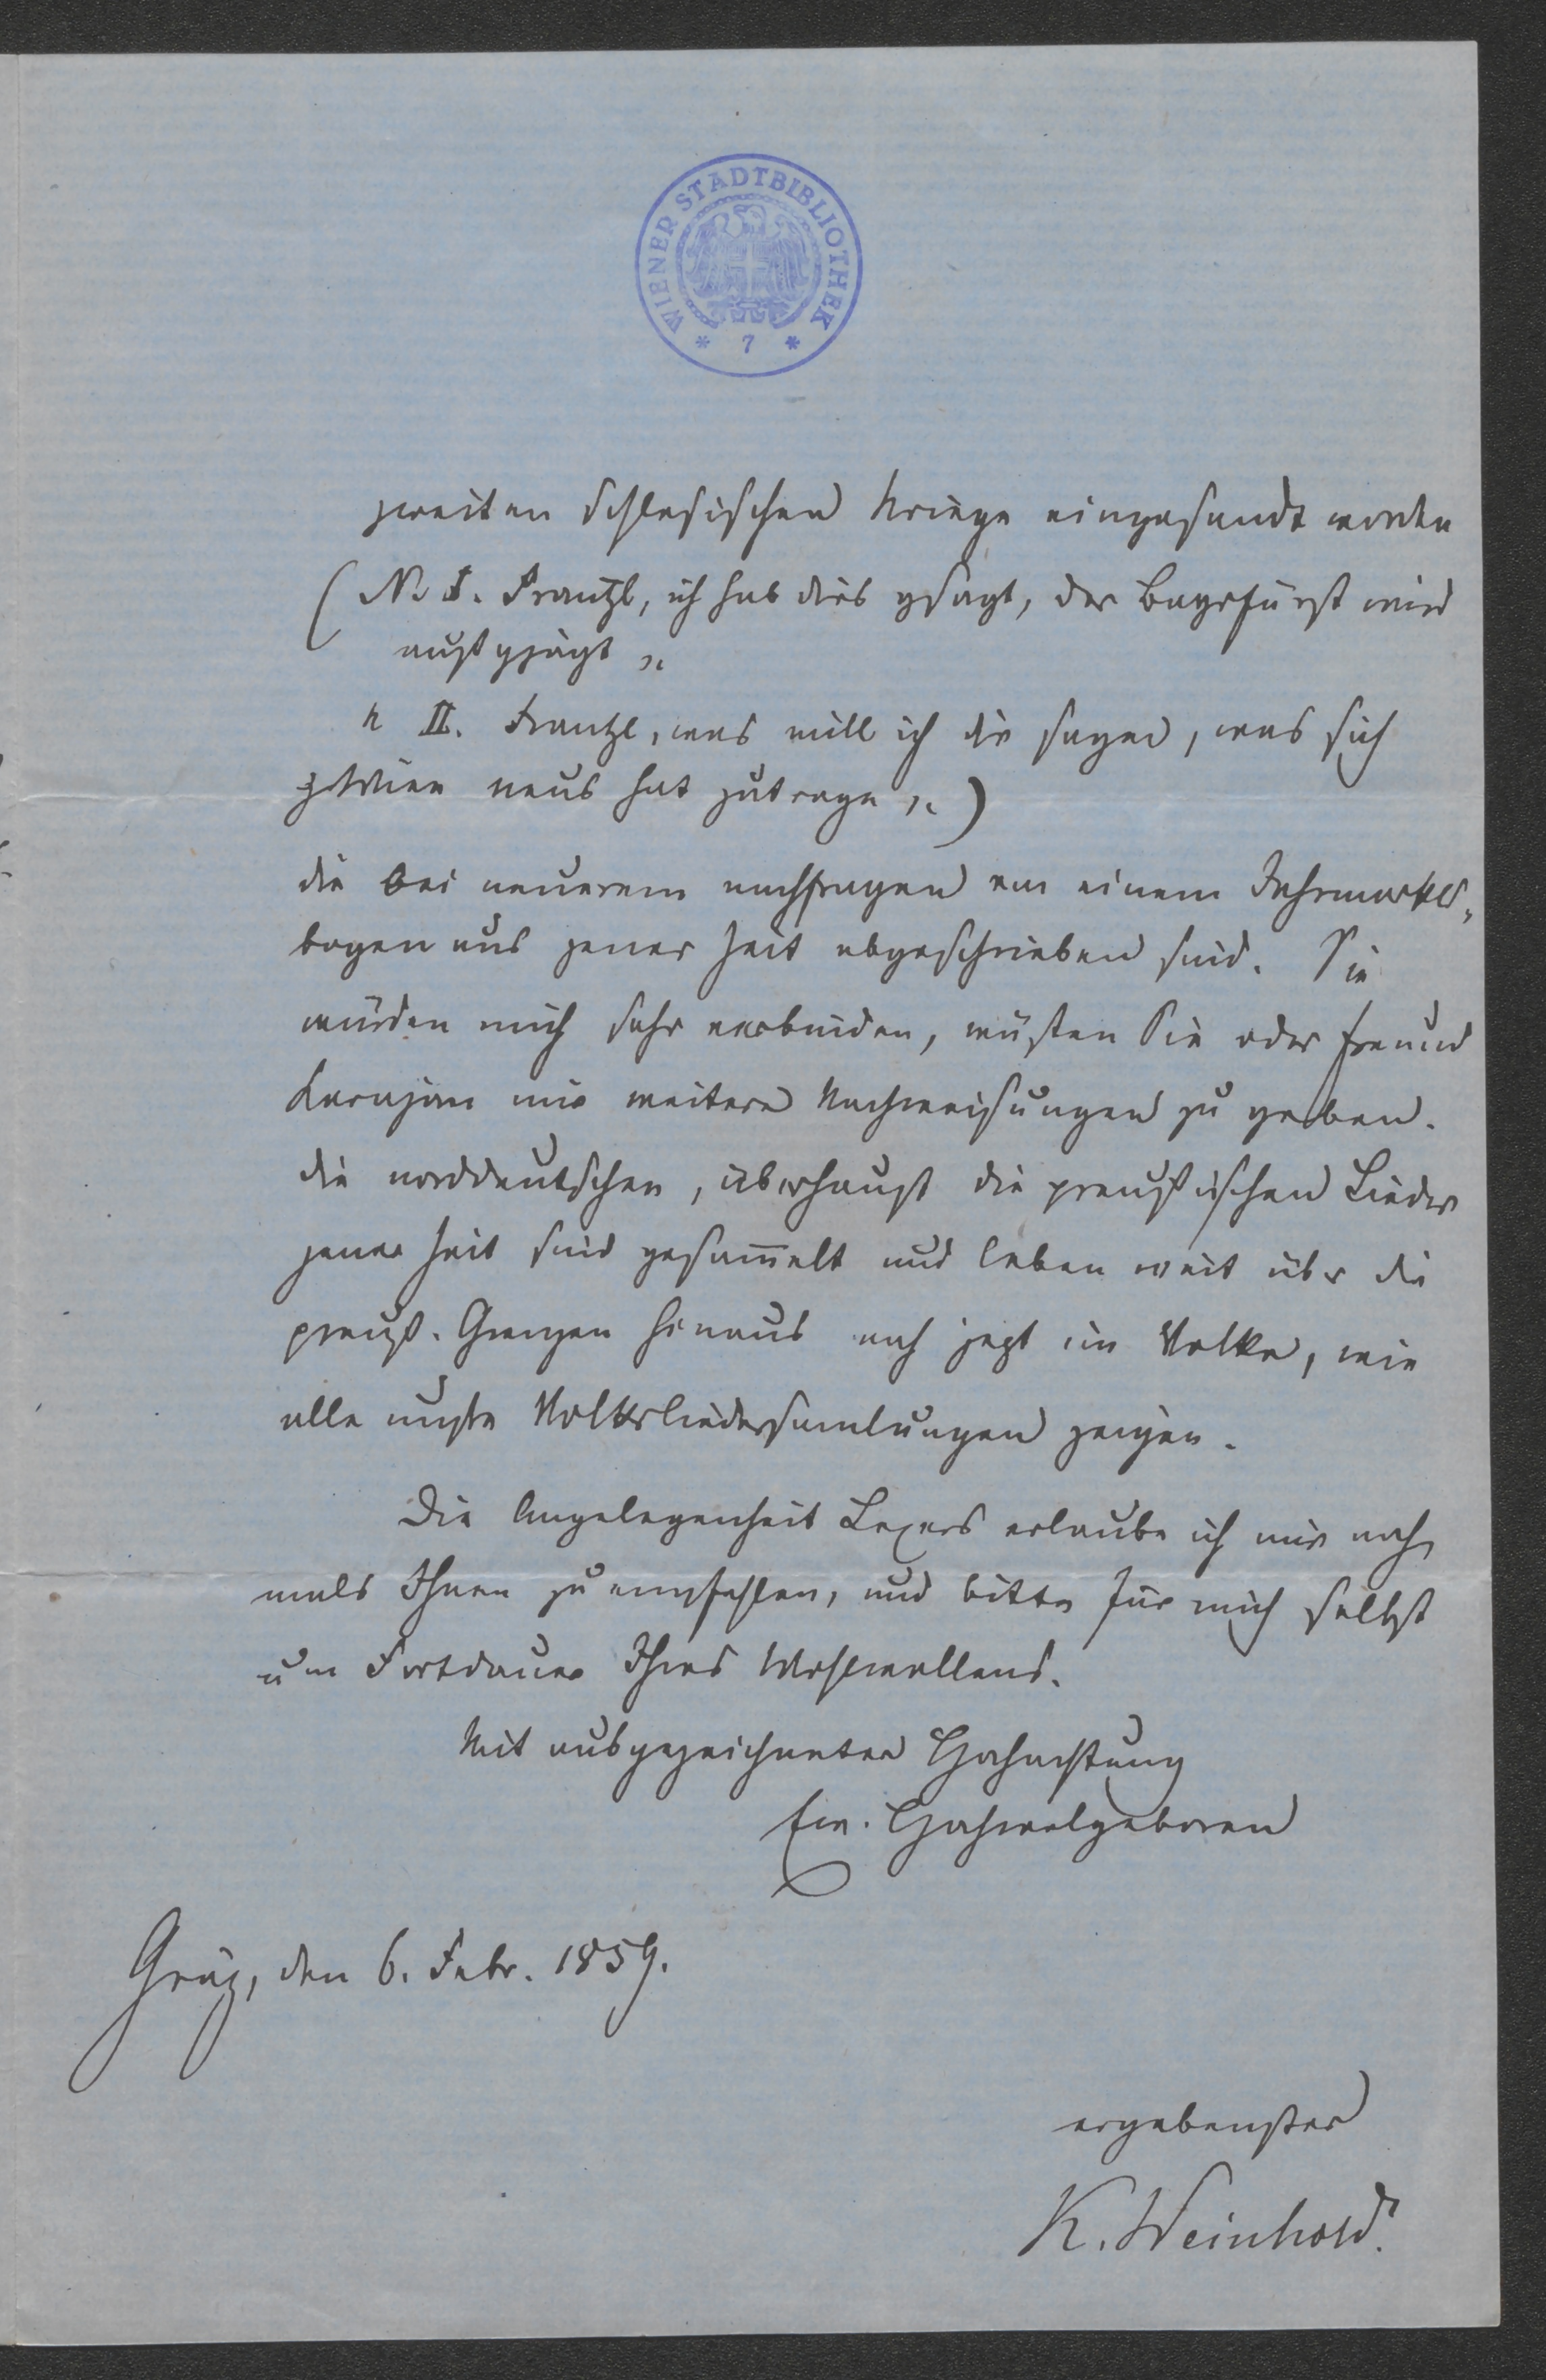 WIENER STADTBIBLIOTHEK
* 7 *
zweiten schlesischen Kriege eingesandt worden
(No I. Frantzl, ich hab dirs gsagt, der Bayrfürst wird
außgjägt „
" II. Frantzl, was will ich dir sagen, was sich
z'Wien neus hat zutrage „)
die bei neuerem nachfragen von einem Jahrmarkts-
bogen aus jener Zeit abgeschrieben sind. Sie
würden mich sehr verbinden, wüsten Sie oder Freund
Karajan mir weitere Nachweisungen zu geben.
die norddeutschen, überhaupt die preußischen Lieder
jener Zeit sind gesam̅elt und leben weit über die
preuß. Grenzen hinaus noch jezt im Volke, wie
alle Volksliedersamlungen zeigen.
Die Angelegenheit Lexers erlaube ich mir noch-
mals Ihnen zu empfehlen, und bitte für mich selbst
um Fortdauer Ihres Wohlwollens.
Mit ausgezeichneter Hochachtung
Ew. Hochwolgeboren
Gräz, den 6. Febr. 1859.
ergebenster
K. Weinhold.